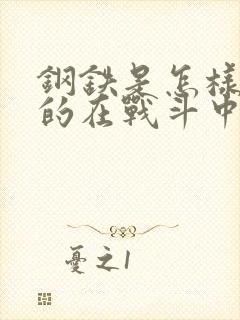 鋼鉄是怎樣
的在戰斗中
憂之1